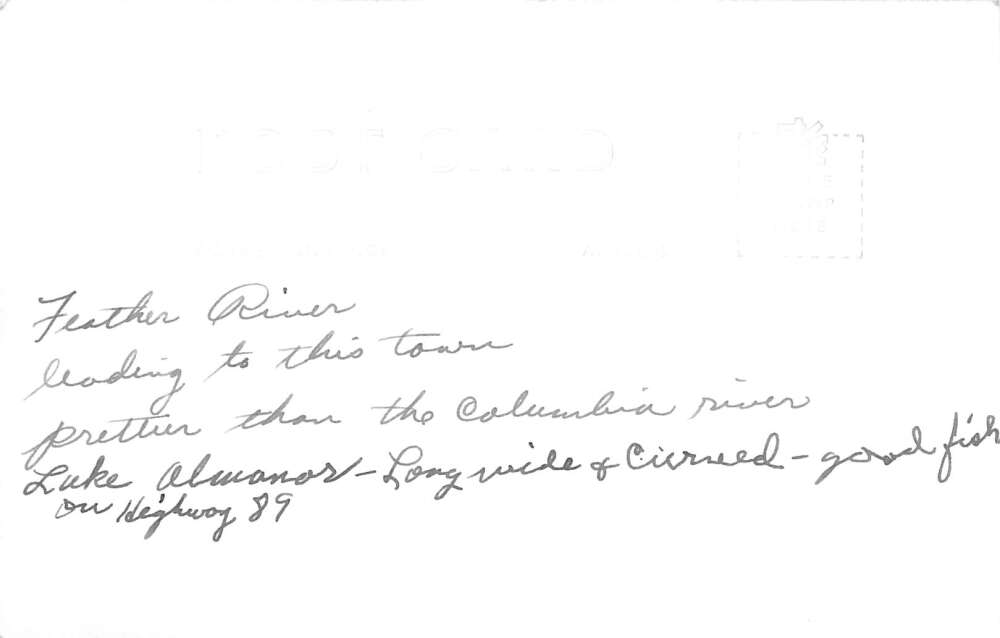 POST CARD
PLACE
STAMP
HERE
ADDRESS
Feather River
leading to this town
prettier than the Columbia river
Lake Almanor - Long wide & Curved - good fish
on Highway 89